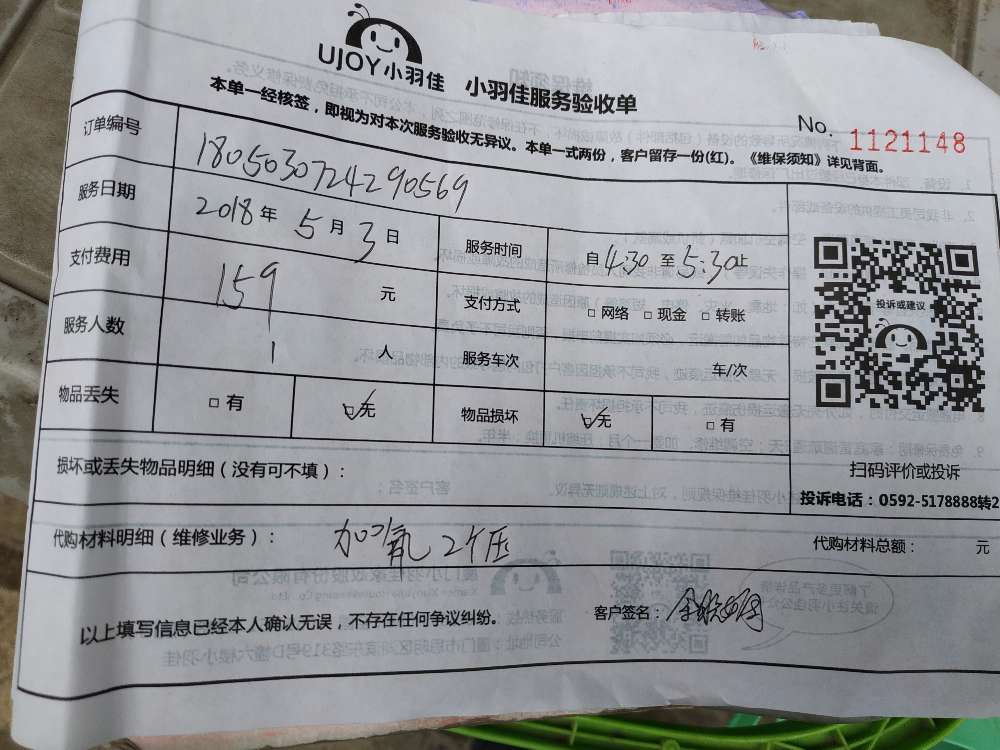 UJOY小羽佳 小羽佳服务验收单
No. 1121148
本单一经核签，即视为对本次服务验收无异议。本单一式两份，客户留存一份(红)。《维保须知》详见背面。
订单编号 180503072429056９
服务日期 2018年5月3日 服务时间 自4:30至5:30止
支付费用 159元 支付方式 □网络 □现金 □转账
服务人数 1人 服务车次 车/次
物品丢失 □有 ☑无 物品损坏 ☑无 □有
投诉或建议
扫码评价或投诉
投诉电话：0592-5178888转2
损坏或丢失物品明细（没有可不填）：
代购材料明细（维修业务）： 加氧2个压
代购材料总额： 元
以上填写信息已经本人确认无误，不存在任何争议纠纷。
客户签名：